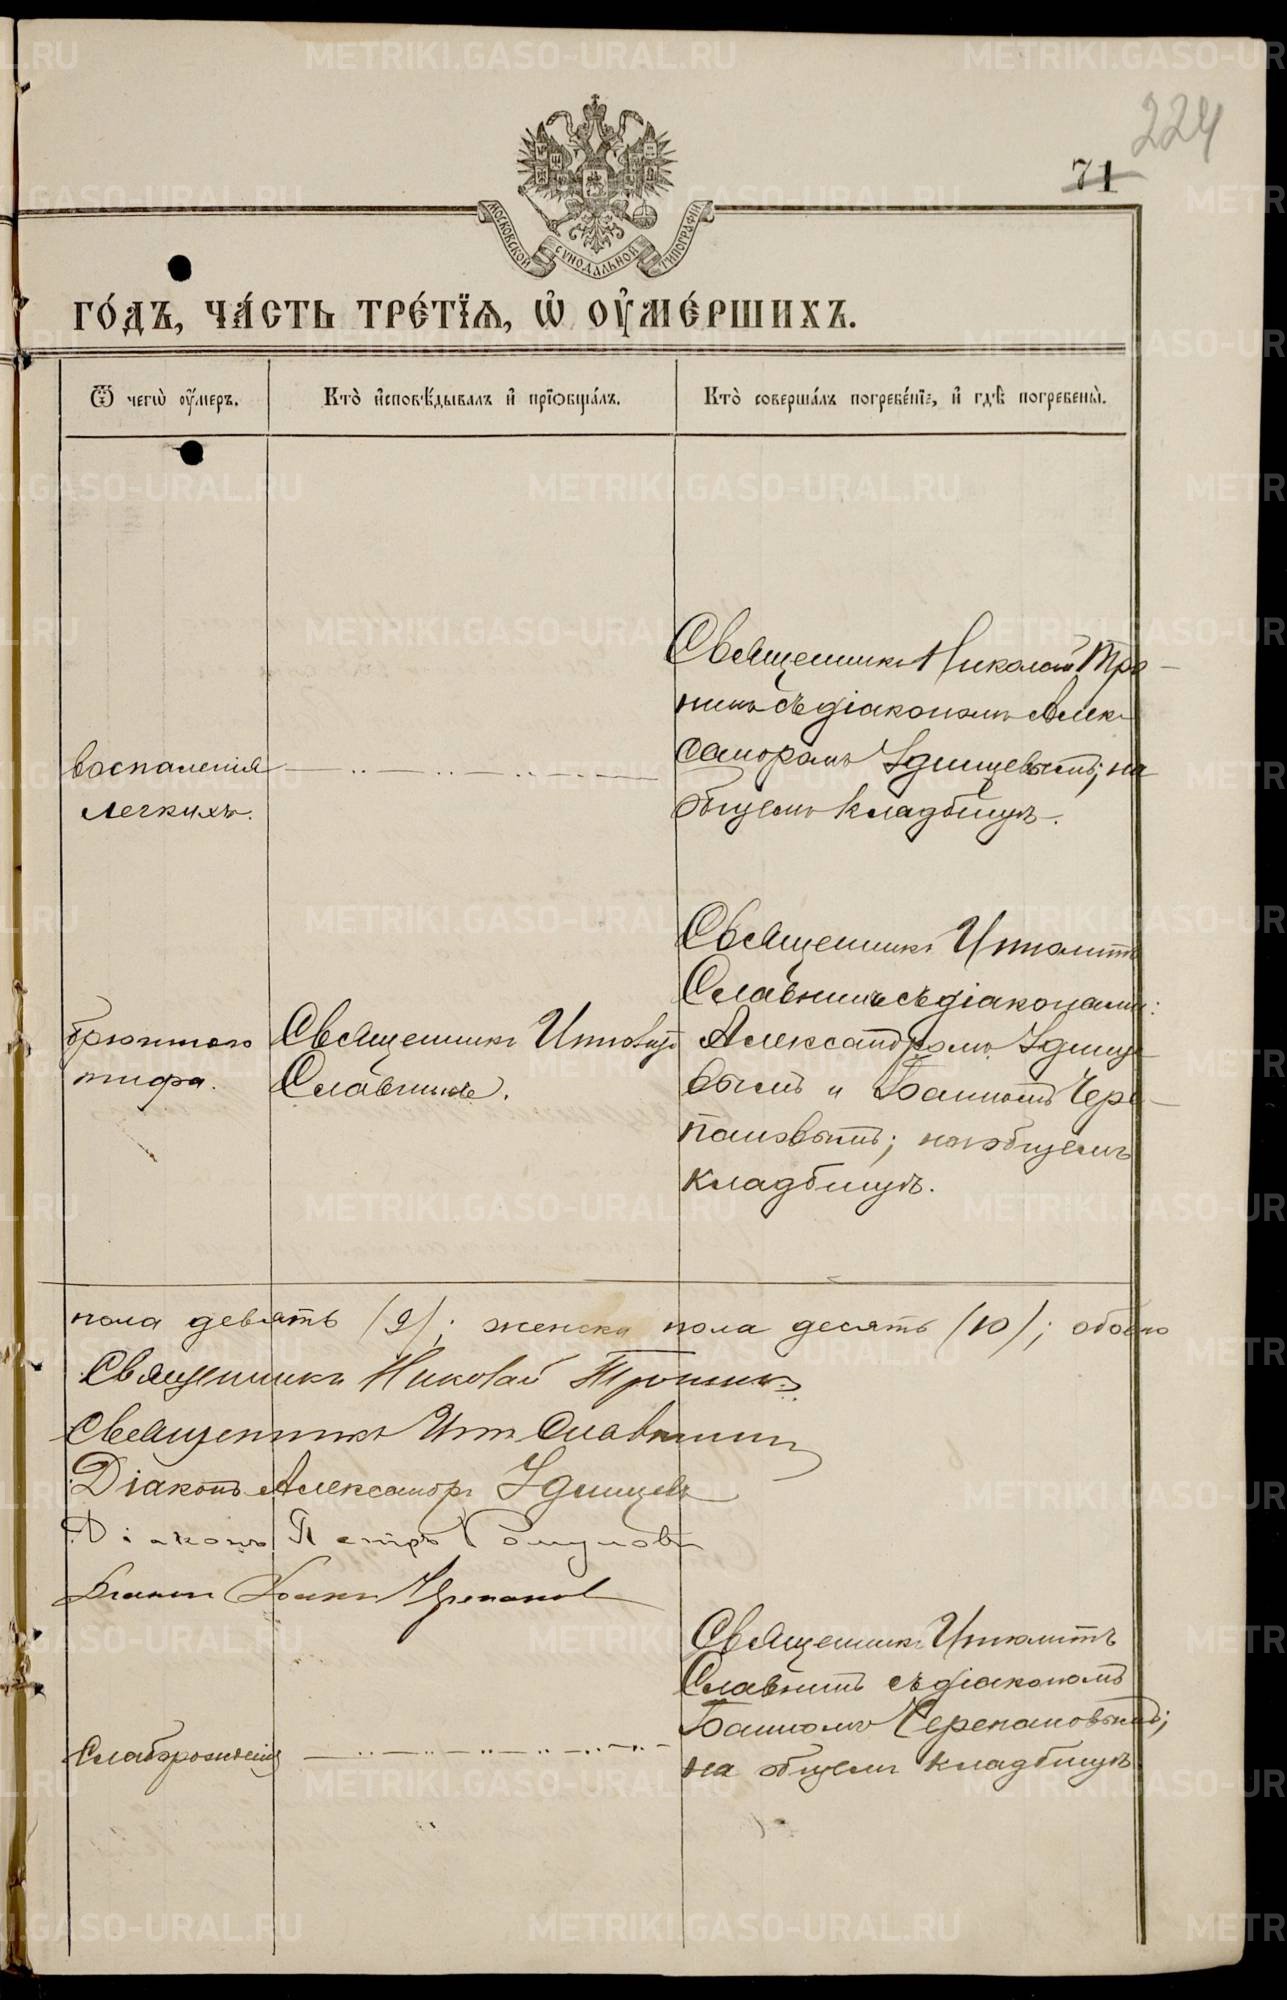 224
71
МОСКОВСКОЙ СѴНОДАЛЬНОЙ ТИПОГРАФІИ
ГО́ДЪ, ЧА́СТЬ ТРЕ́ТЇѦ, Ѡ҆ ОУ҆МЕ́РШИХЪ.
Ѿ чегѡ̀ оу҆́меръ.
Кто̀ и҆сповѣ́дывалъ и҆ прїѡбща́лъ.
Кто̀ соверша́лъ погребе́нїе, и҆ гдѣ̀ погребены̀.
воспаленія
легкихъ.
Священникъ Николай Тро-
нинъ съ діакономъ Алек-
сандромъ Удинцевымъ; на
общемъ кладбищѣ.
брюшного
тифа.
Священникъ Ипполитъ
Славнинъ.
Священникъ Ипполитъ
Славнинъ съ діаконами:
Александромъ Удинце-
вымъ и Іоанномъ Чере-
пановымъ; на общемъ
кладбищѣ.
пола девять (9); женска пола десять (10); обоего
Священникъ Николай Тронинъ
Священникъ Ипп. Славнинъ
Діаконъ Александръ Удинцевъ
Діаконъ Петръ
Діаконъ Іоаннъ Черепановъ
Слаборожденія
Священникъ Ипполитъ
Славнинъ съ діакономъ
Іоанномъ Черепановымъ;
на общемъ кладбищѣ.
METRIKI.GASO-URAL.RU